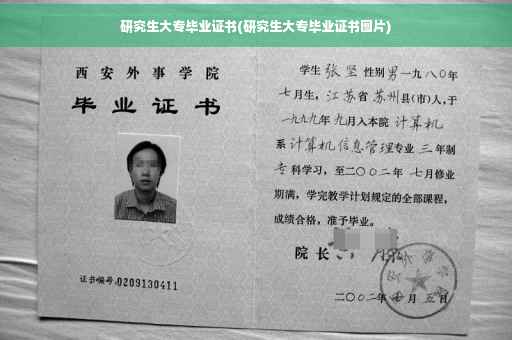 研究生大专毕业证书(研究生大专毕业证书图片)
西安外事学院
毕业证书
证书编号:0209130411
学生 张坚 性别 男 一九八〇年
七月生，江苏省 苏州县(市)人，于
一九九九年 九月入本院 计算机
系 计算机信息管理专业 三 年制
专 科学习，至二〇〇二年 七月修业
期满，学完教学计划规定的全部课程，
成绩合格，准予毕业。
院 长
二〇〇二年 月 五日